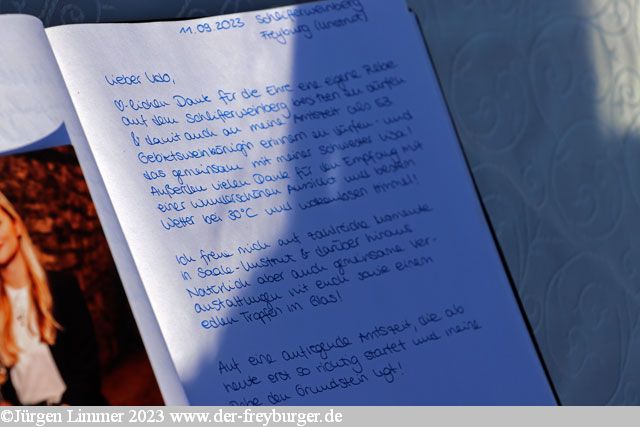 11.09.2023 Schleiferweinberg
Freyburg (Unstrut)
Lieber Udo,
♡-lichen Dank für die Ehre eine eigene Rebe
auf dem Schleiferweinberg besitzen zu dürfen
& damit auch an meine Amtszeit als 53.
Gebietsweinkönigin erinnern zu dürfen - und
das gemeinsam mit meiner Schwester
Außerdem vielen Dank für den Empfang mit
einer wunderschönen Aussicht und besten
Wetter bei 30°C und wolkenlosen Himmel!
Ich freue mich auf zahlreiche Momente
in Saale-Unstrut & darüber hinaus
Natürlich aber auch gemeinsame Ver-
anstaltungen mit Euch sowie einem
edlen Tropfen im Glas!
Auf eine aufregende Amtszeit, die ab
heute erst so richtig startet und meine
Rebe den Grundstein legt!!
©Jürgen Limmer 2023 www.der-freyburger.de